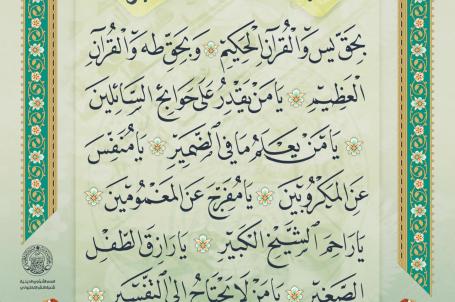 بِحَقِّ يس وَالْقُرْآنِ الْحَكِيمِ وَبِحَقِّ طه وَالْقُرْآنِ
الْعَظِيمِ يَا مَنْ يَقْدِرُ عَلَى حَوَائِجِ السَّائِلِينَ
يَا مَنْ يَعْلَمُ مَا فِي الضَّمِيرِ يَا مُنَفِّسَ
عَنِ الْمَكْرُوبِينَ يَا مُفَرِّجَ عَنِ الْمَغْمُومِينَ
يَا رَاحِمَ الشَّيْخِ الْكَبِيرِ يَا رَازِقَ الطِّفْلِ
الصَّغِيرِ يَا مَنْ لَا يَحْتَاجُ إِلَى التَّفْسِيرِ